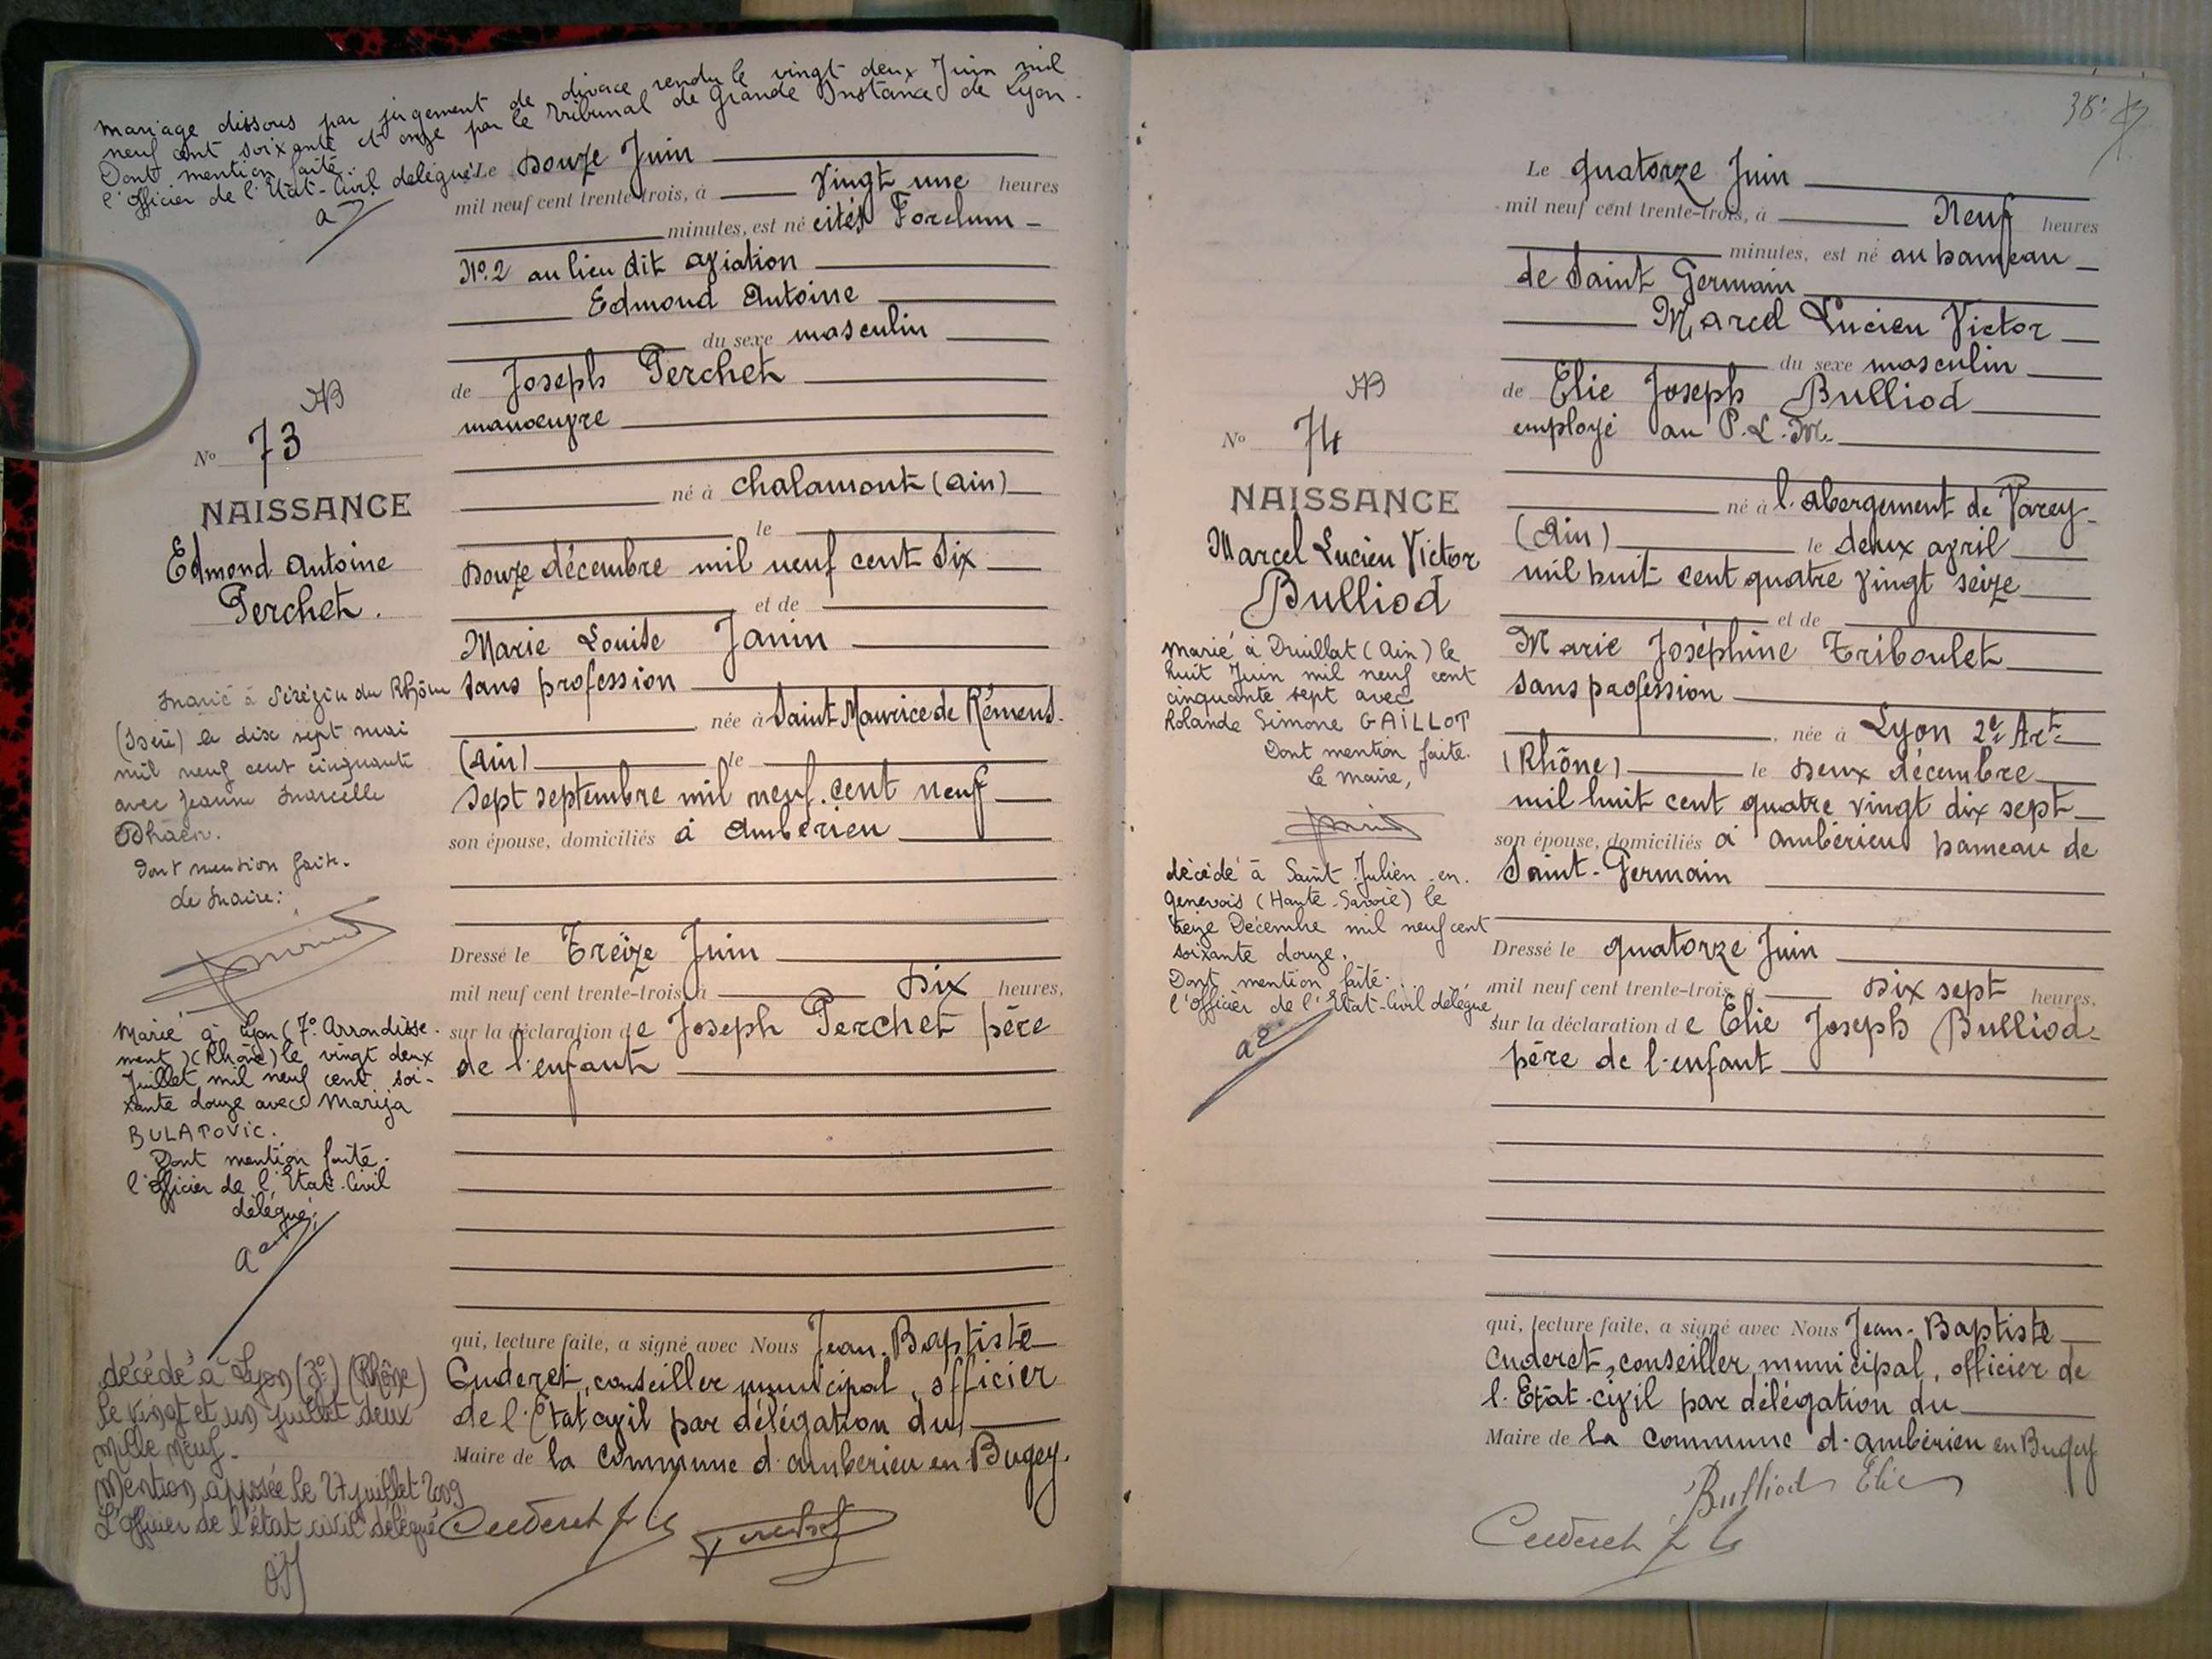 Mariage dissous par jugement de divorce rendu le vingt deux Juin mil
neuf cent soixante et onze par le Tribunal de Grande Instance de Lyon.
Dont mention faite.
l'Officier de l'Etat-Civil délégué:
Le Douze Juin
mil neuf cent trente-trois, à Vingt une heures
minutes, est né cités Forclum
No. 2 au lieu dit aviation
Edmond Antoine
du sexe masculin
de Joseph Perchet
manoeuvre
né à Chalamont (Ain)
le
Douze décembre mil neuf cent six
et de
Marie Louise Janin
sans profession
née à Saint Maurice de Rémens.
(Ain) le
sept septembre mil neuf cent neuf
son épouse, domiciliés à Ambérieu
Dressé le Treize Juin
mil neuf cent trente-trois, à Dix heures,
sur la déclaration de Joseph Perchet père
de l'enfant
qui, lecture faite, a signé avec Nous Jean-Baptiste
Cuderet, conseiller municipal, officier
de l'Etat civil par délégation du
Maire de la Commune d'Ambérieu en Bugey.
Cuderet J B
Perchet
AB
No 73
NAISSANCE
Edmond Antoine
Perchet.
Marié à Sérézin du Rhône
(Isère) le dix sept mai
mil neuf cent cinquante
avec Jeanne Marcelle
Dont mention faite.
Le Maire:
Marié à Lyon (7e Arrondisse-
ment) (Rhône) le vingt deux
Juillet mil neuf cent soi-
xante douze avec Marija
BULATOVIC.
Dont mention faite.
l'Officier de l'Etat-Civil
délégué:
décédé à Lyon (3e) (Rhône)
le vingt et un juillet deux
mille neuf.
Mention apposée le 27 juillet 2009
L'officier de l'état civil délégué
38
Le quatorze Juin
mil neuf cent trente-trois, à Neuf heures
minutes, est né au hameau
de Saint Germain
Marcel Lucien Victor
du sexe masculin
de Elie Joseph Bulliod
employé au P.L.M.
né à l'Abergement de Varey
(Ain) le deux avril
mil huit cent quatre vingt seize
et de
Marie Joséphine Triboulet
sans profession
née à Lyon 2e Art
(Rhône) le Deux décembre
mil huit cent quatre vingt dix sept
son épouse, domiciliés à Ambérieu hameau de
Saint-Germain
Dressé le quatorze Juin
mil neuf cent trente-trois, à Dix sept heures,
sur la déclaration de Elie Joseph Bulliod
père de l'enfant
qui, lecture faite, a signé avec Nous Jean-Baptiste
Cuderet, conseiller municipal, officier de
l'Etat-civil par délégation du
Maire de la Commune d'Ambérieu en Bugey
Bulliod Elie
Cuderet J B
AB
No 74
NAISSANCE
Marcel Lucien Victor
Bulliod
Marié à Druillat (Ain) le
huit Juin mil neuf cent
cinquante sept avec
Rolande Simone GAILLOT
Dont mention faite.
Le Maire,
décédé à Saint-Julien-en-
Genevois (Haute-Savoie) le
Décembre mil neuf cent
soixante douze.
Dont mention faite.
l'Officier de l'Etat-Civil délégué,